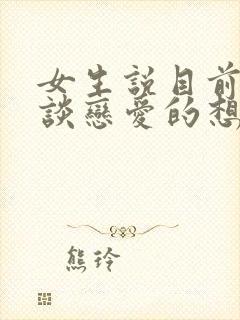 女生說目前
談戀愛的想
熊玲